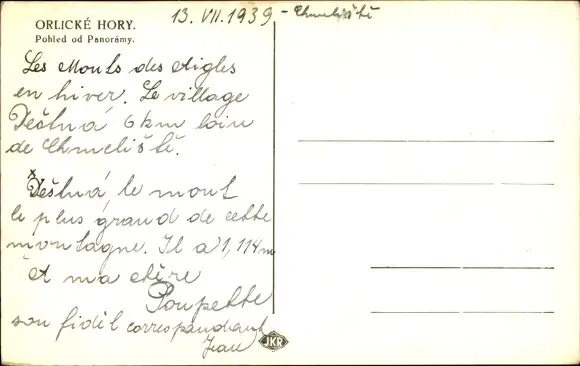 13. VII. 1939 - Chmeliště
ORLICKÉ HORY.
Pohled od Panorámy.
Les Monts des Aigles
en hiver. Le village
Deštná 6 km loin
de Chmeliště.
x Deštná le mont
le plus grand de cette
montagne. Il a 1,114 m
Et ma chère
Poupette
son fidèl correspondant
Jean
JKR